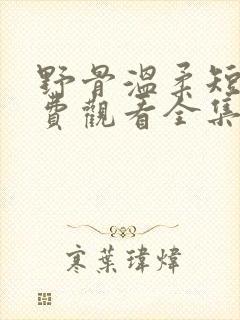 野骨溫柔短
費觀看全集
寒葉瑋煒